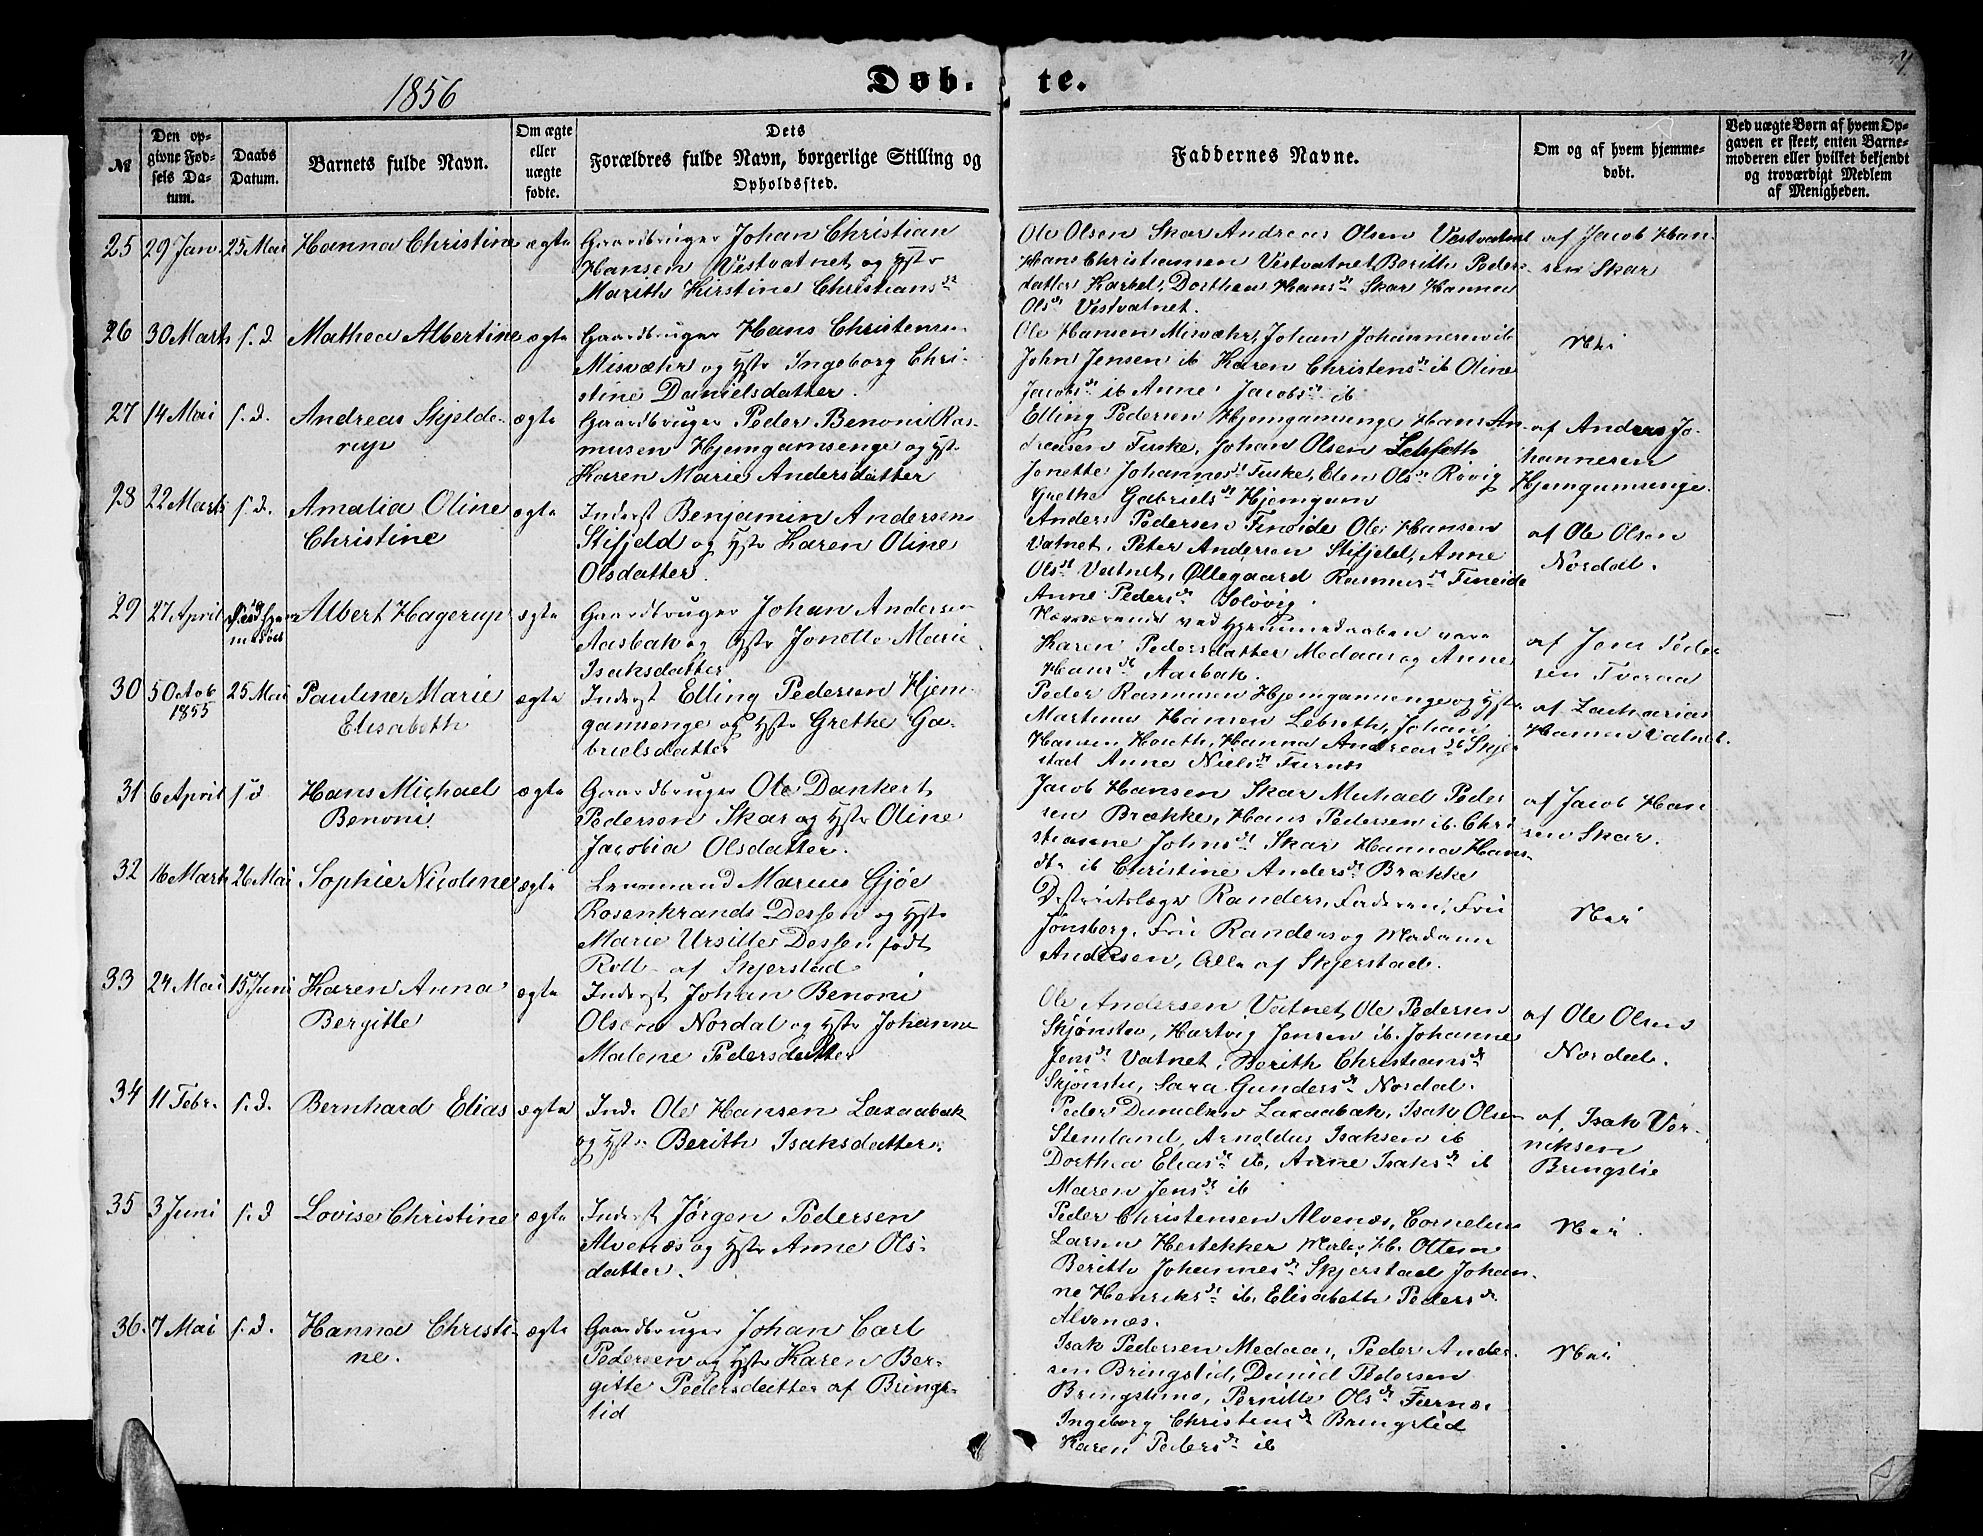 1856
Døb.
te.
№
Den op-
givne Fød-
sels Da-
tum.
Daabs
Datum.
Barnets fulde Navn.
Om ægte
eller
uægte
fødte.
Dets
Forældres fulde Navn, borgerlige Stilling og
Opholdssted.
Faddernes Navne.
Om og af hvem hjemme-
døbt.
Ved uægte Børn af hvem Op-
gaven er skeet, enten Barne-
moderen eller hvilket bekjendt
og troværdigt Medlem
af Menigheden.
25
29 Jan.
25 Mai
Hanna Christine
ægte
Gaardbruger Johan Christian
Hansen Vestvatnet og Hstr
Marith Kirstine Christiansdr
Ole Olsen Skar Andreas Olsen Vestvatnet
Hans Christiansen Vestvatnet, Berith Peders-
datter Karkel, Dorthea Hansdr Skar Hanna
Olsdr Vestvatnet.
af Jacob Han-
sen Skar
26
30 Marts
s. d.
Mathea Albertine
ægte
Gaardbruger Hans Christensen
Misvæhr og Hstr Ingeborg Chri-
stine Danielsdatter.
Ole Hansen Misvæhr, Johan Johannesen ib
John Jensen ib Karen Christensdr ib Oline
Jacobsdr ib Anne Jacobsdr ib
Nei
27
14 Mai
s. d.
Andreas Skjelde-
rup
ægte
Gaardbruger Peder Benoni Ras-
musen Hjemgamsenge og Hstr
Karen Marie Andersdatter
Elling Pedersen Hjemgamsenge Hans An-
dreasen Fuske, Johan Olsen
Jonette Johannesdr Fuske, Elen Olsdr Røvig
Grethe Gabrielsdr Hjemgam
af Anders Jo-
hannesen
Hjemgamsenge
28
22 Marts
s. d.
Amalia Oline
Christine
ægte
Inderst Benjamin Andersen
Stifjeld og Hstr Karen Oline
Olsdatter.
Anders Pedersen Fineide Ole Hansen
Vatnet, Peter Andersen Stifjeld, Anne
Olsdr Vatnet, Øllegaard Rasmusdr Fineide
Anne Pedersdr Soløvig.
af Ole Olsen
Nordal.
29
27 April
Albert Hagerup
ægte
Gaardbruger Johan Andersen
Aasbak og Hstr Jonette Marie
Isaksdatter
Nærværende ved Hjemmedaaben vare
Karen Pedersdatter Medaas og Anne
Hansdr Aasbak.
af Jens Peder-
sen Tveraa
30
5 Octob
1855
25 Mai
Pauline Marie
Elisabeth
ægte
Inderst Elling Pedersen Hjem-
gamsenge og Hstr Grethe Ga-
brielsdatter
Peder Rasmusen Hjemgamsenge og Hstr
Martinus Hansen Lebseth, Johan
Hansen Hoseth, Hanna Andreasdr Skjer-
stad Anne Nielsdr Furnes
af Zacharias
Hansen Vatnet.
31
6 April
s. d
Hans Michael
Benoni.
ægte
Gaardbruger Ole Dankert
Pedersen Skar og Hstr Oline
Jacobia Olsdatter.
Jacob Hansen Skar Michael Peder
sen Brække, Hans Pedersen ib. Chri
stianne Johnsdr Skar Hanna Hans-
dtr ib Christine Andersdr Brække
af Jacob Han
sen Skar.
32
16 Marts
26 Mai
Sophie Nicoline
ægte
Lensmand Marius Gjøe
Rosenkrands Dessen og Hstr
Marie Ursille Dessen født
Roll af Skjerstad
Destriktslæge Randers, Faderen, Fru
Jønsberg, Fru Randers og Madam
Andersen, Alle af Skjerstad.
Nei
33
24 Mai
15 Juni
Karen Anna
Bergitte
ægte
Inderst Johan Benoni
Olsen Nordal og Hstr Johanne
Malene Pedersdatter
Ole Andersen Vatnet, Ole Pedersen
Skjønstu, Hartvig Jensen ib. Johanne
Jensdr Vatnet, Berith Christiansdr
Skjønstu, Sara Gundersdr Nordal.
af Ole Olsen
Nordal.
34
11 Febr.
s. d.
Bernhard Elias
ægte
Ind. Ole Hansen Laxaabak
og Hstr Berith Isaksdatter.
Peder Danielsen Laxaabak, Isak Olsen
Stemland, Arnoldus Isaksen ib
Dorthea Eliasdr ib, Anne Isaksdr ib
Maren Jensdr ib
af Isak Vør-
niksen
Bringslie
35
3 Juni
s. d
Lovise Christine
ægte
Inderst Jørgen Pedersen
Alvenæs og Hstr Anne Ols-
datter.
Peder Christensen Alvenæs, Cornelius
Larsen Hestekker H. Ottesen
Berith Johannesdr Skjerstad Johan-
ne Henriksdr ib, Elisabeth Pedersdr
Alvenæs.
Nei
36.
7 Mai
s. d.
Hanna Christi-
ne.
ægte
Gaardbruger Johan Carl
Pedersen og Hstr Karen Ber-
gitte Pedersdatter af Brings-
lid
Isak Pedersen Medaas, Peder Ander-
sen Bringslid, Daniel Pedersen
Bringslimo, Pernille Olsdr Furnes
Ingeborg Christensdr Bringslid
Karen Pedersdr ib
Nei